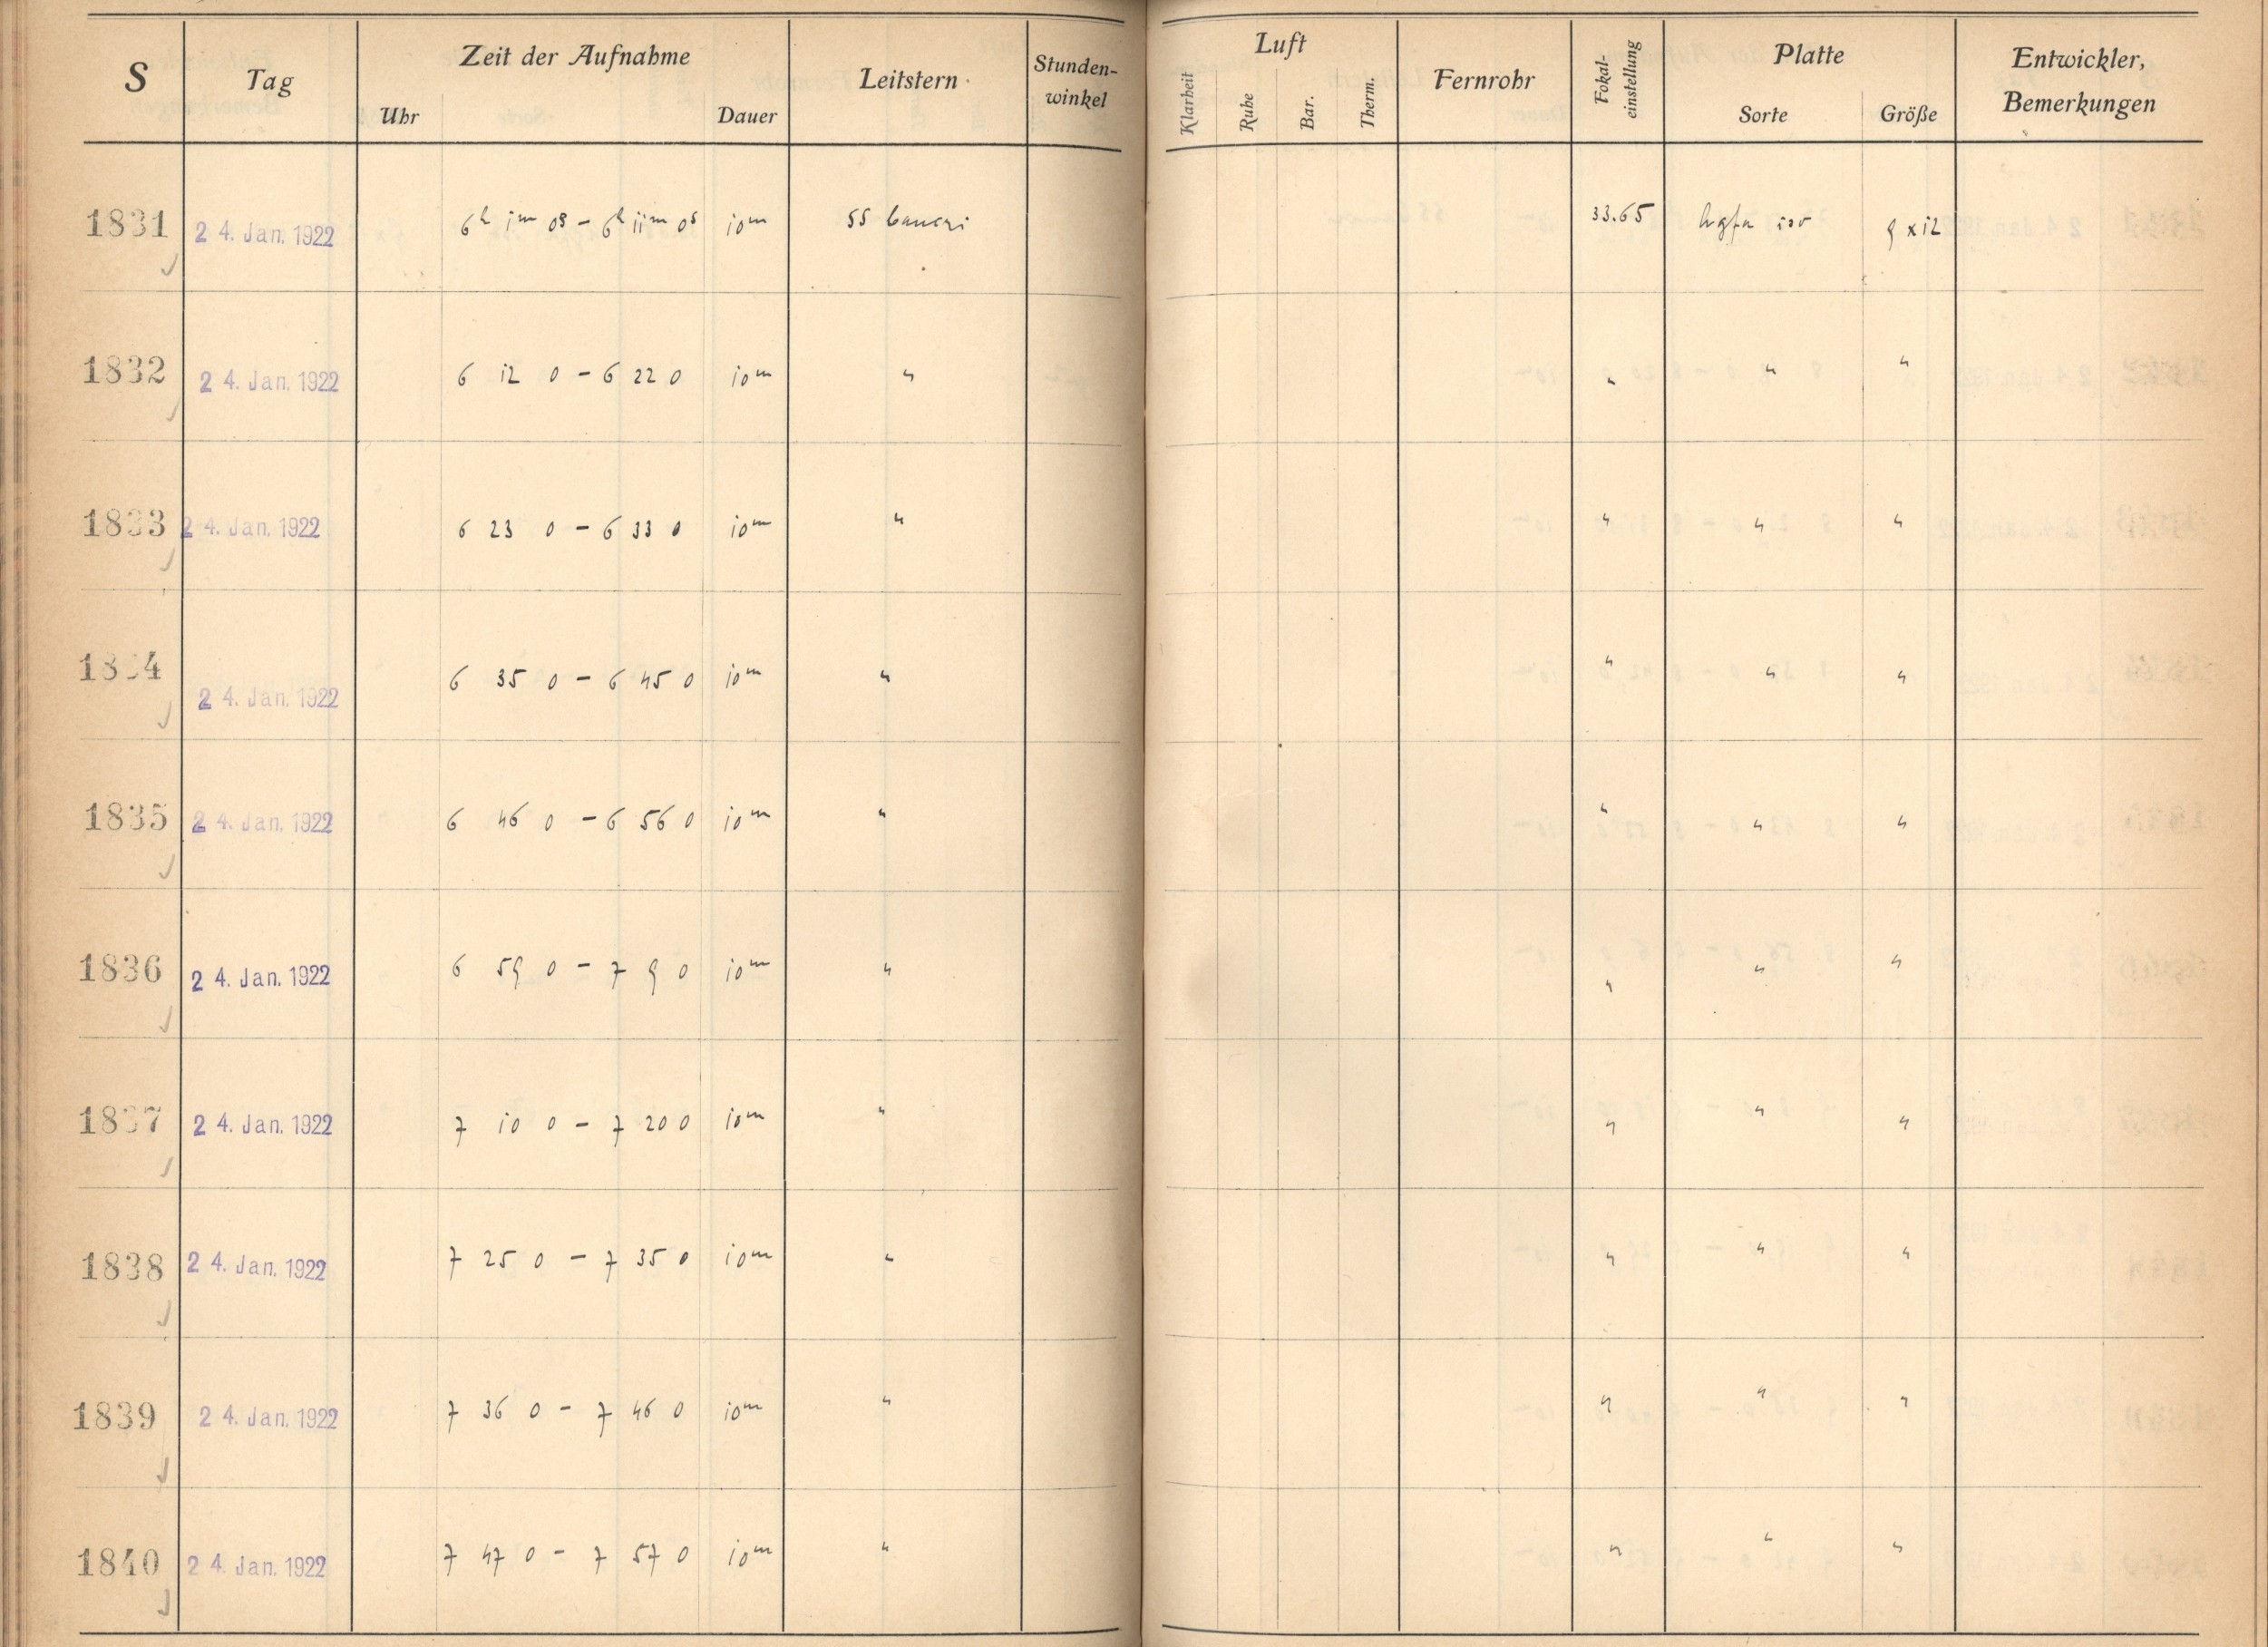 S Tag Zeit der Aufnahme Uhr Dauer Leitstern Stunden-winkel Luft Klarheit Ruhe Bar. Therm. Fernrohr Fokal-einstellung Platte Sorte Größe Entwickler, Bemerkungen
1831 24. Jan. 1922 6h 1m 0s - 6h 11m 0s 10m 55 Cancri 33.65 Agfa iso 9 x 12
1832 24. Jan. 1922 6 12 0 - 6 22 0 10m " " " "
1833 24. Jan. 1922 6 23 0 - 6 33 0 10m " " " "
1834 24. Jan. 1922 6 35 0 - 6 45 0 10m " " " "
1835 24. Jan. 1922 6 46 0 - 6 56 0 10m " " " "
1836 24. Jan. 1922 6 59 0 - 7 9 0 10m " " " "
1837 24. Jan. 1922 7 10 0 - 7 20 0 10m " " " "
1838 24. Jan. 1922 7 25 0 - 7 35 0 10m " " " "
1839 24. Jan. 1922 7 36 0 - 7 46 0 10m " " " "
1840 24. Jan. 1922 7 47 0 - 7 57 0 10m " " " "